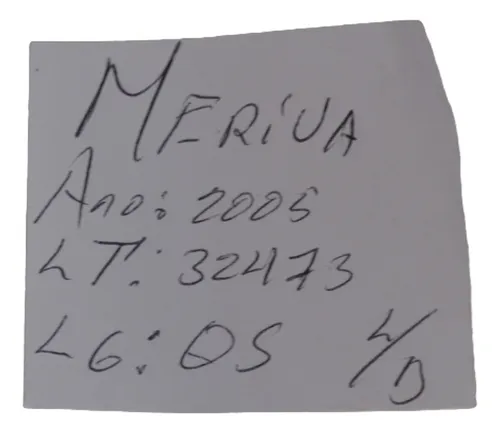 MERIVA
Ano: 2005
LT: 32473
LG: QS L/D